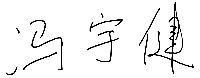 冯宇健